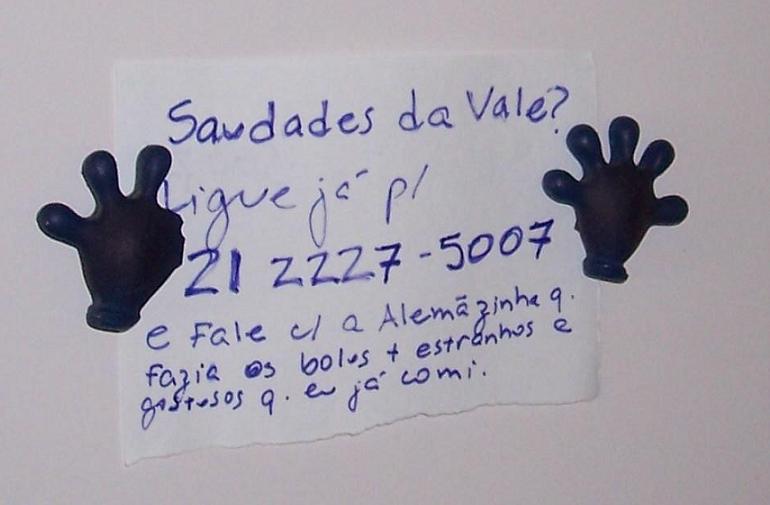 Saudades da Vale?
Ligue já p/
21 2227-5007
e Fale c/ a Alemãzinha q.
fazia os bolos + estranhos e
gostosos q. eu já comi.